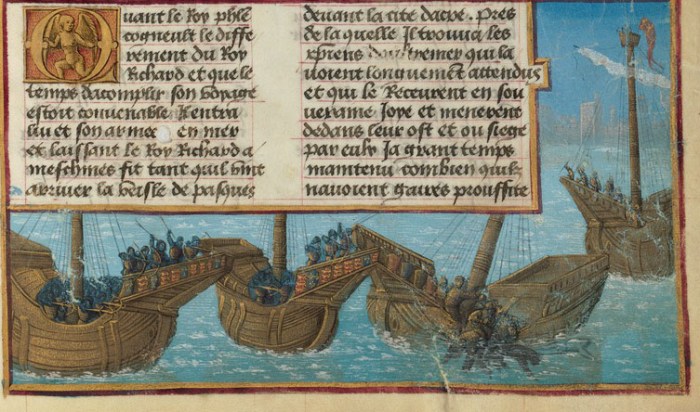 Quant le Roy phle
cogneult le diffe
rement du Roy
Richard et que le
temps dacomplir son voyage
estoit conuenable Il entra
luy et son armee en mer
et laissant le Roy Richard a
meschines fit tant quil vint
arriuer la veisle de pasques
deuant la cite dacre. Pres
de la quelle Il trouua les
xpiens doultremer qui la
uoient longuement attendus
et qui le Receurent en sou
ueraine Joye et menerent
dedans leur ost et ou siege
par eulx Ja grant temps
maintenu combien quilz
nauoient gaires prouffite